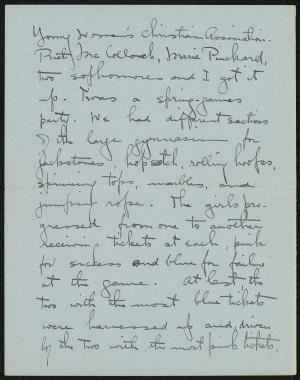 Young Women's Christian Association.
Pratt, McCollock, Marie Puckard,
two sophomores and I got it
up. Twas a spring-games
party. We had different sections
of the large gymnasium for
jackstones, hopscotch, rolling hoops,
spinning tops, marbles, and
jumping rope. The girls pro-
gressed from one to another
receiving tickets at each, pink
for success and blue for failure
at the game. At last the
two with the most blue tickets
were harnessed up and driven
by the two with the most pink tickets,